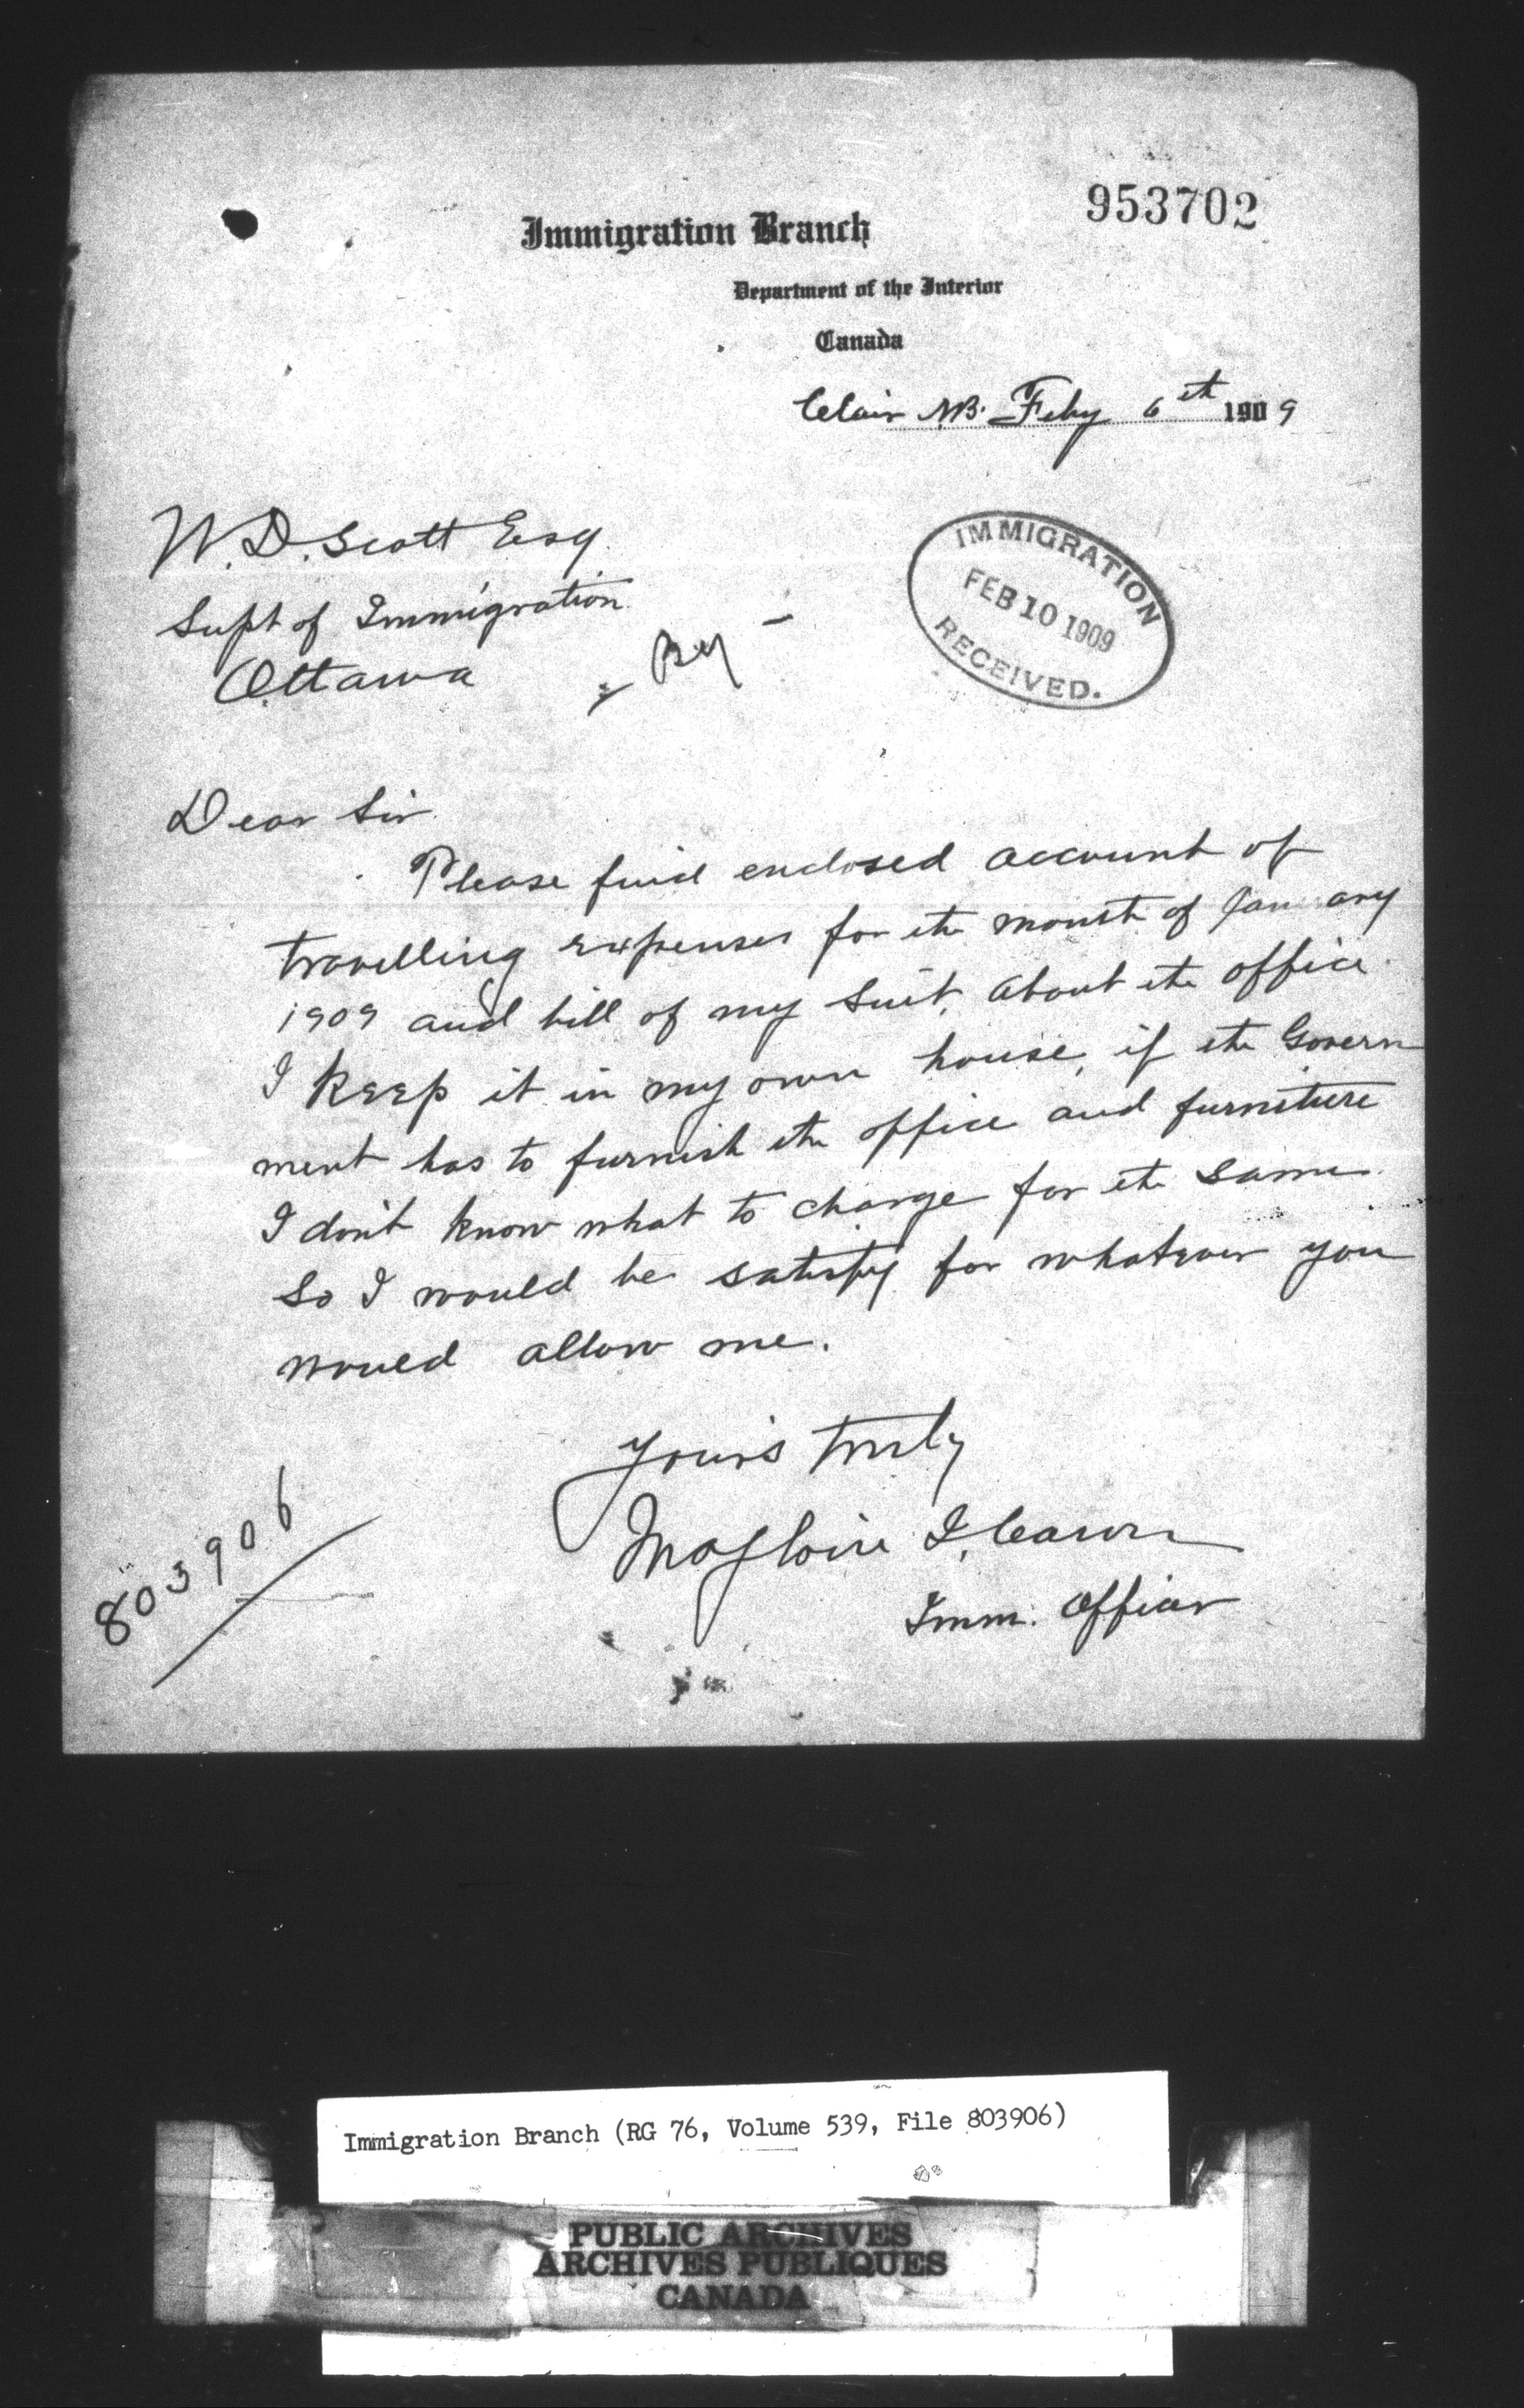 953702
Immigration Branch
Department of the Interior
Canada
Clair N.B. Feby 6th 1909
W. D. Scott Esq.
Supt of Immigration
Ottawa
IMMIGRATION
FEB 10 1909
RECEIVED.
Dear Sir
Please find enclosed account of
travelling expenses for the month of January
1909 and bill of my suit, about the office
I keep it in my own house, if the Govern
ment has to furnish the office and furniture
I don't know what to charge for the same
So I would be satisfy for whatever you
would allow me.
Your's truly
Imm. Officer
803906
Immigration Branch (RG 76, Volume 539, File 803906)
PUBLIC ARCHIVES
ARCHIVES PUBLIQUES
CANADA